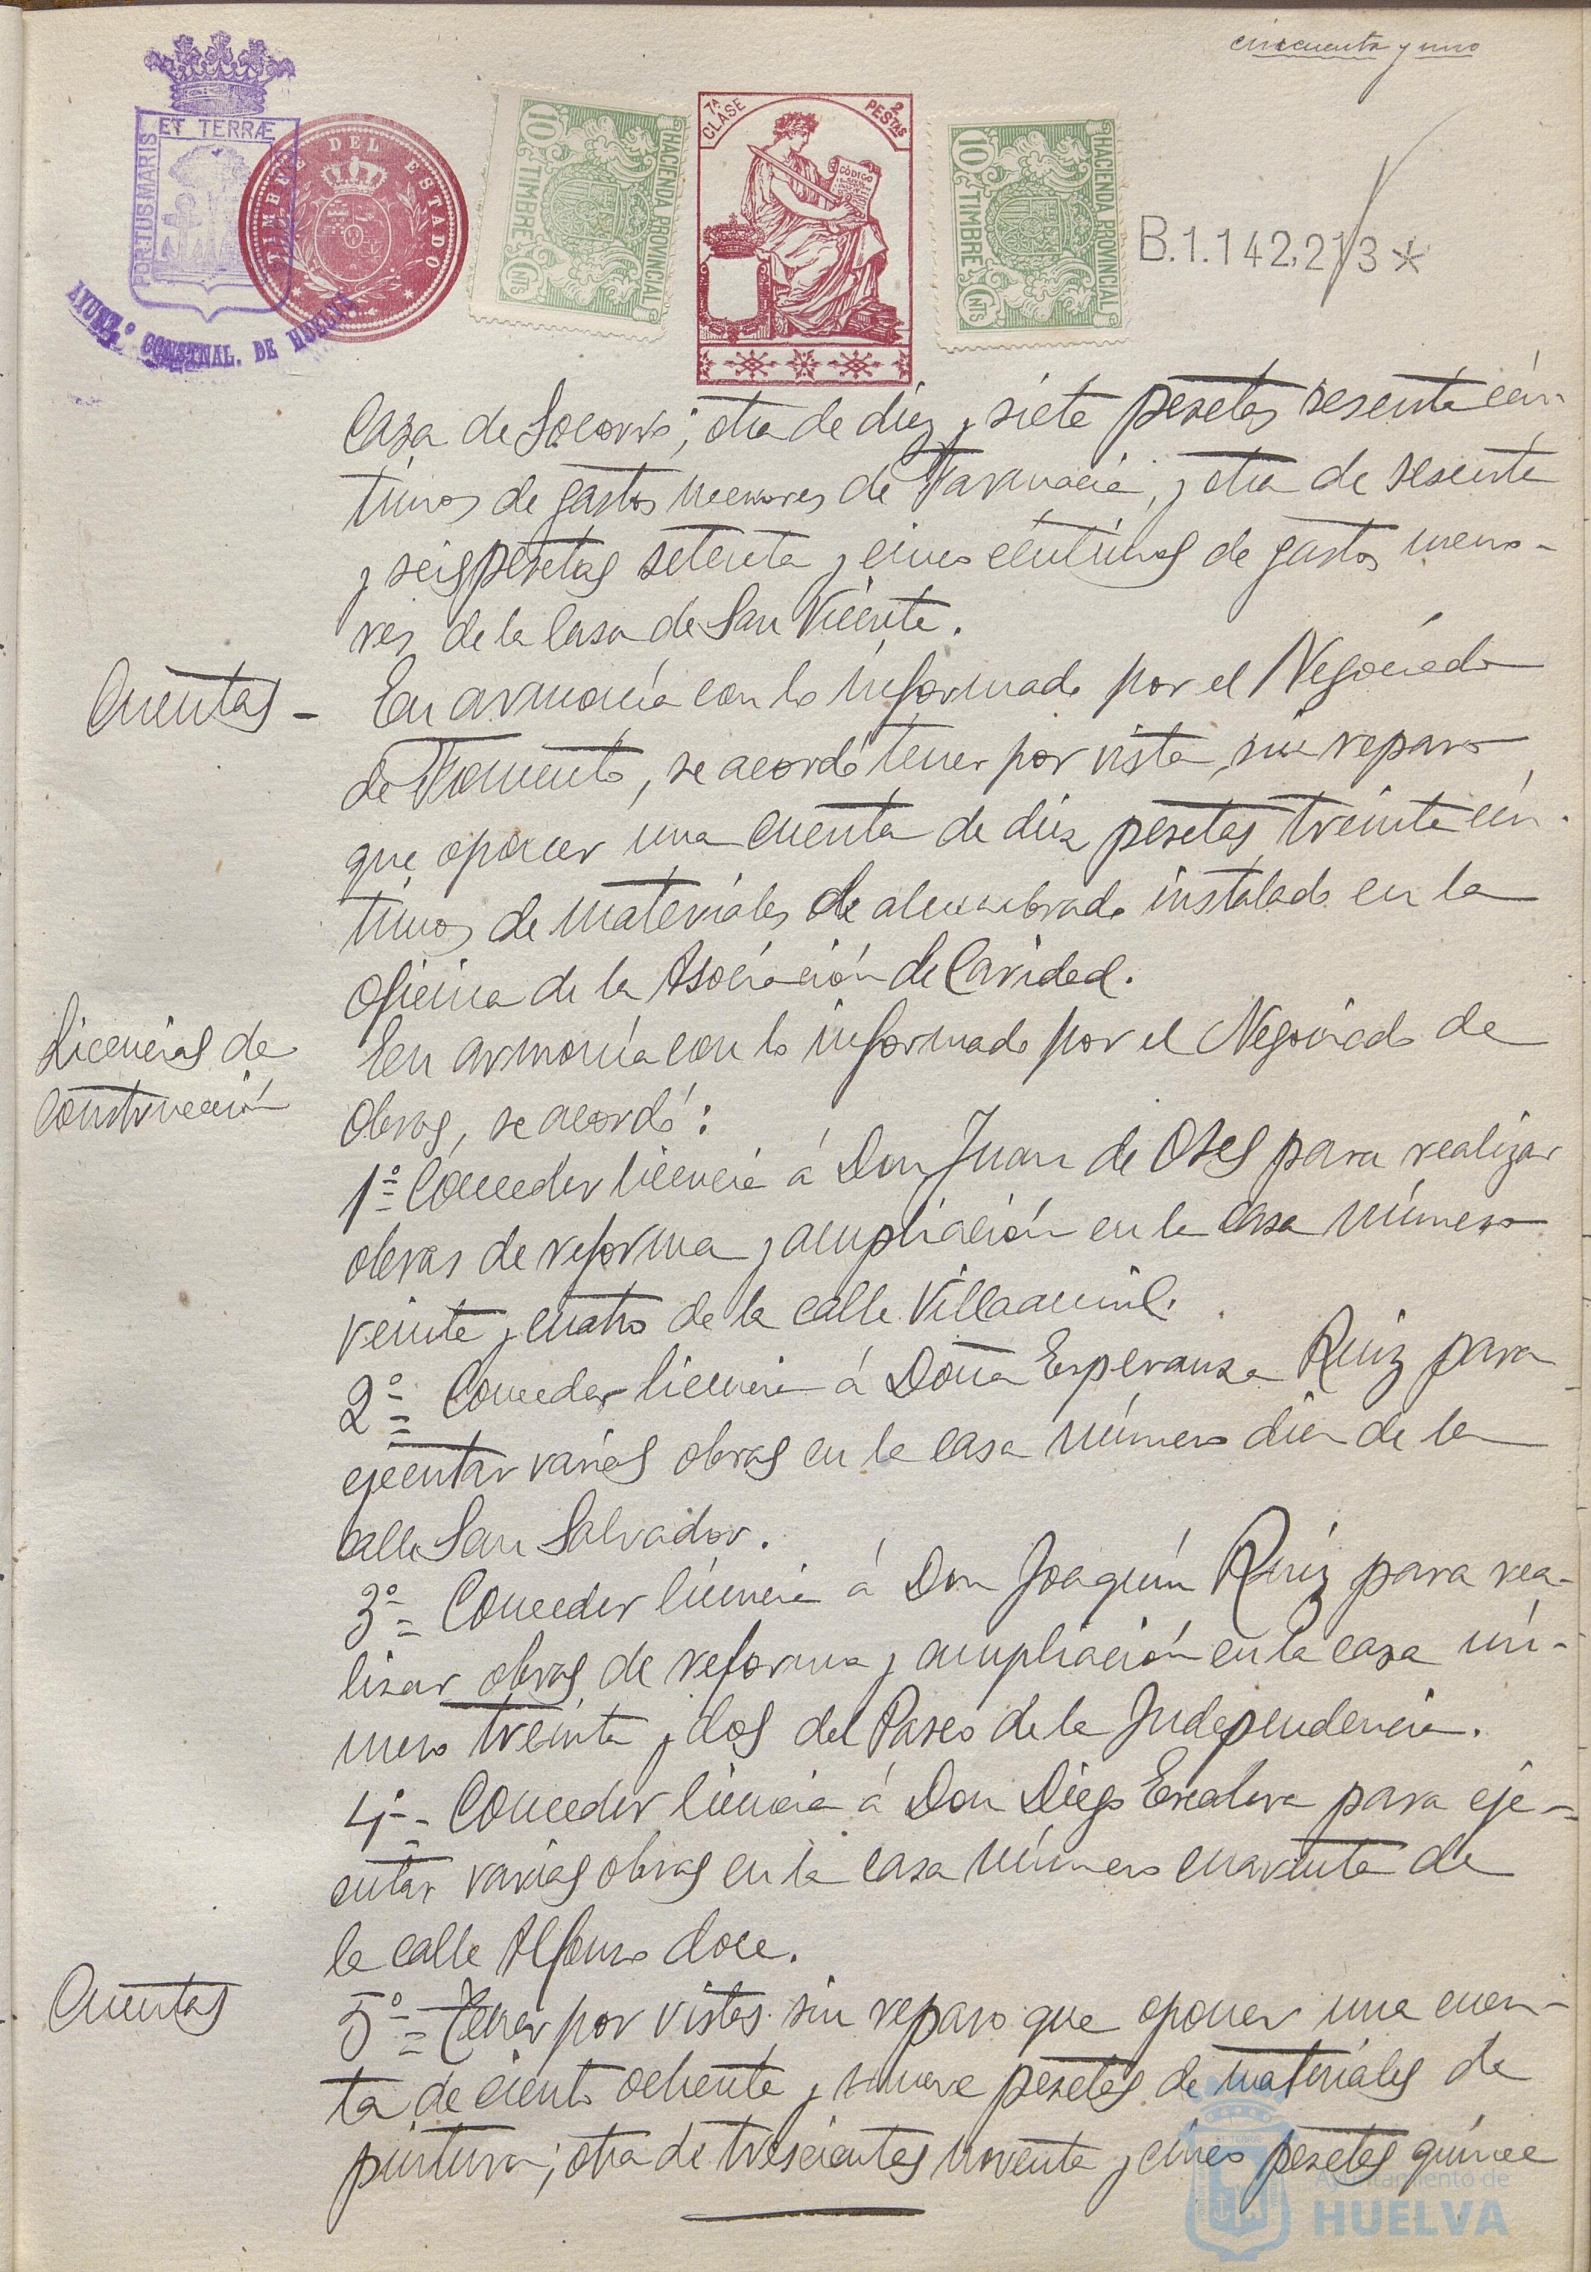 cincuenta y uno
ET TERRÆ
PORTUS MARIS
AYUNTº CONSTNAL. DE HUELVA
TIMBRE DEL ESTADO
HACIENDA PROVINCIAL
10 TIMBRE 10
CTS
7ª CLASE
2 PESTAS
CÓDIGO
HACIENDA PROVINCIAL
10 TIMBRE 10
CTS
B.1.142.213*
Casa de Socorro; otra de diez y siete pesetas sesenta cén-
timos de gastos menores de Farmacia, y otra de sesenta
y seis pesetas setenta y cinco céntimos de gastos meno-
res de la Casa de San Vicente.
Cuentas - En armonía con lo informado por el Negociado
de Fomento, se acordó tener por vista, sin reparo
que oponer una cuenta de diez pesetas treinta cén-
timos de materiales de alumbrado instalado en la
oficina de la Asociación de Caridad.
Licencias de
construcción
En armonía con lo informado por el Negociado de
Obras, se acordó:
1º = Conceder licencia á Don Juan de Oses para realizar
obras de reforma y ampliación en la casa número
veinte y cuatro de la calle Villaamil.
2º = Conceder licencia á Doña Esperanza Ruiz para
ejecutar varias obras en la casa número diez de la
calle San Salvador.
3º = Conceder licencia á Don Joaquín Ruíz para rea-
lizar obras de reforma y ampliación en la casa nú-
mero treinta y dos del Paseo de la Independencia.
4º = Conceder licencia á Don Diego Escalera para eje-
cutar varias obras en la casa número cuarenta de
la calle Alfonso doce.
Cuentas
5º = Tener por vistas sin reparo que oponer una cuen-
ta de ciento ochenta y nueve pesetas de materiales de
pintura; otra de trescientas noventa y cinco pesetas quince
Ayuntamiento de
HUELVA